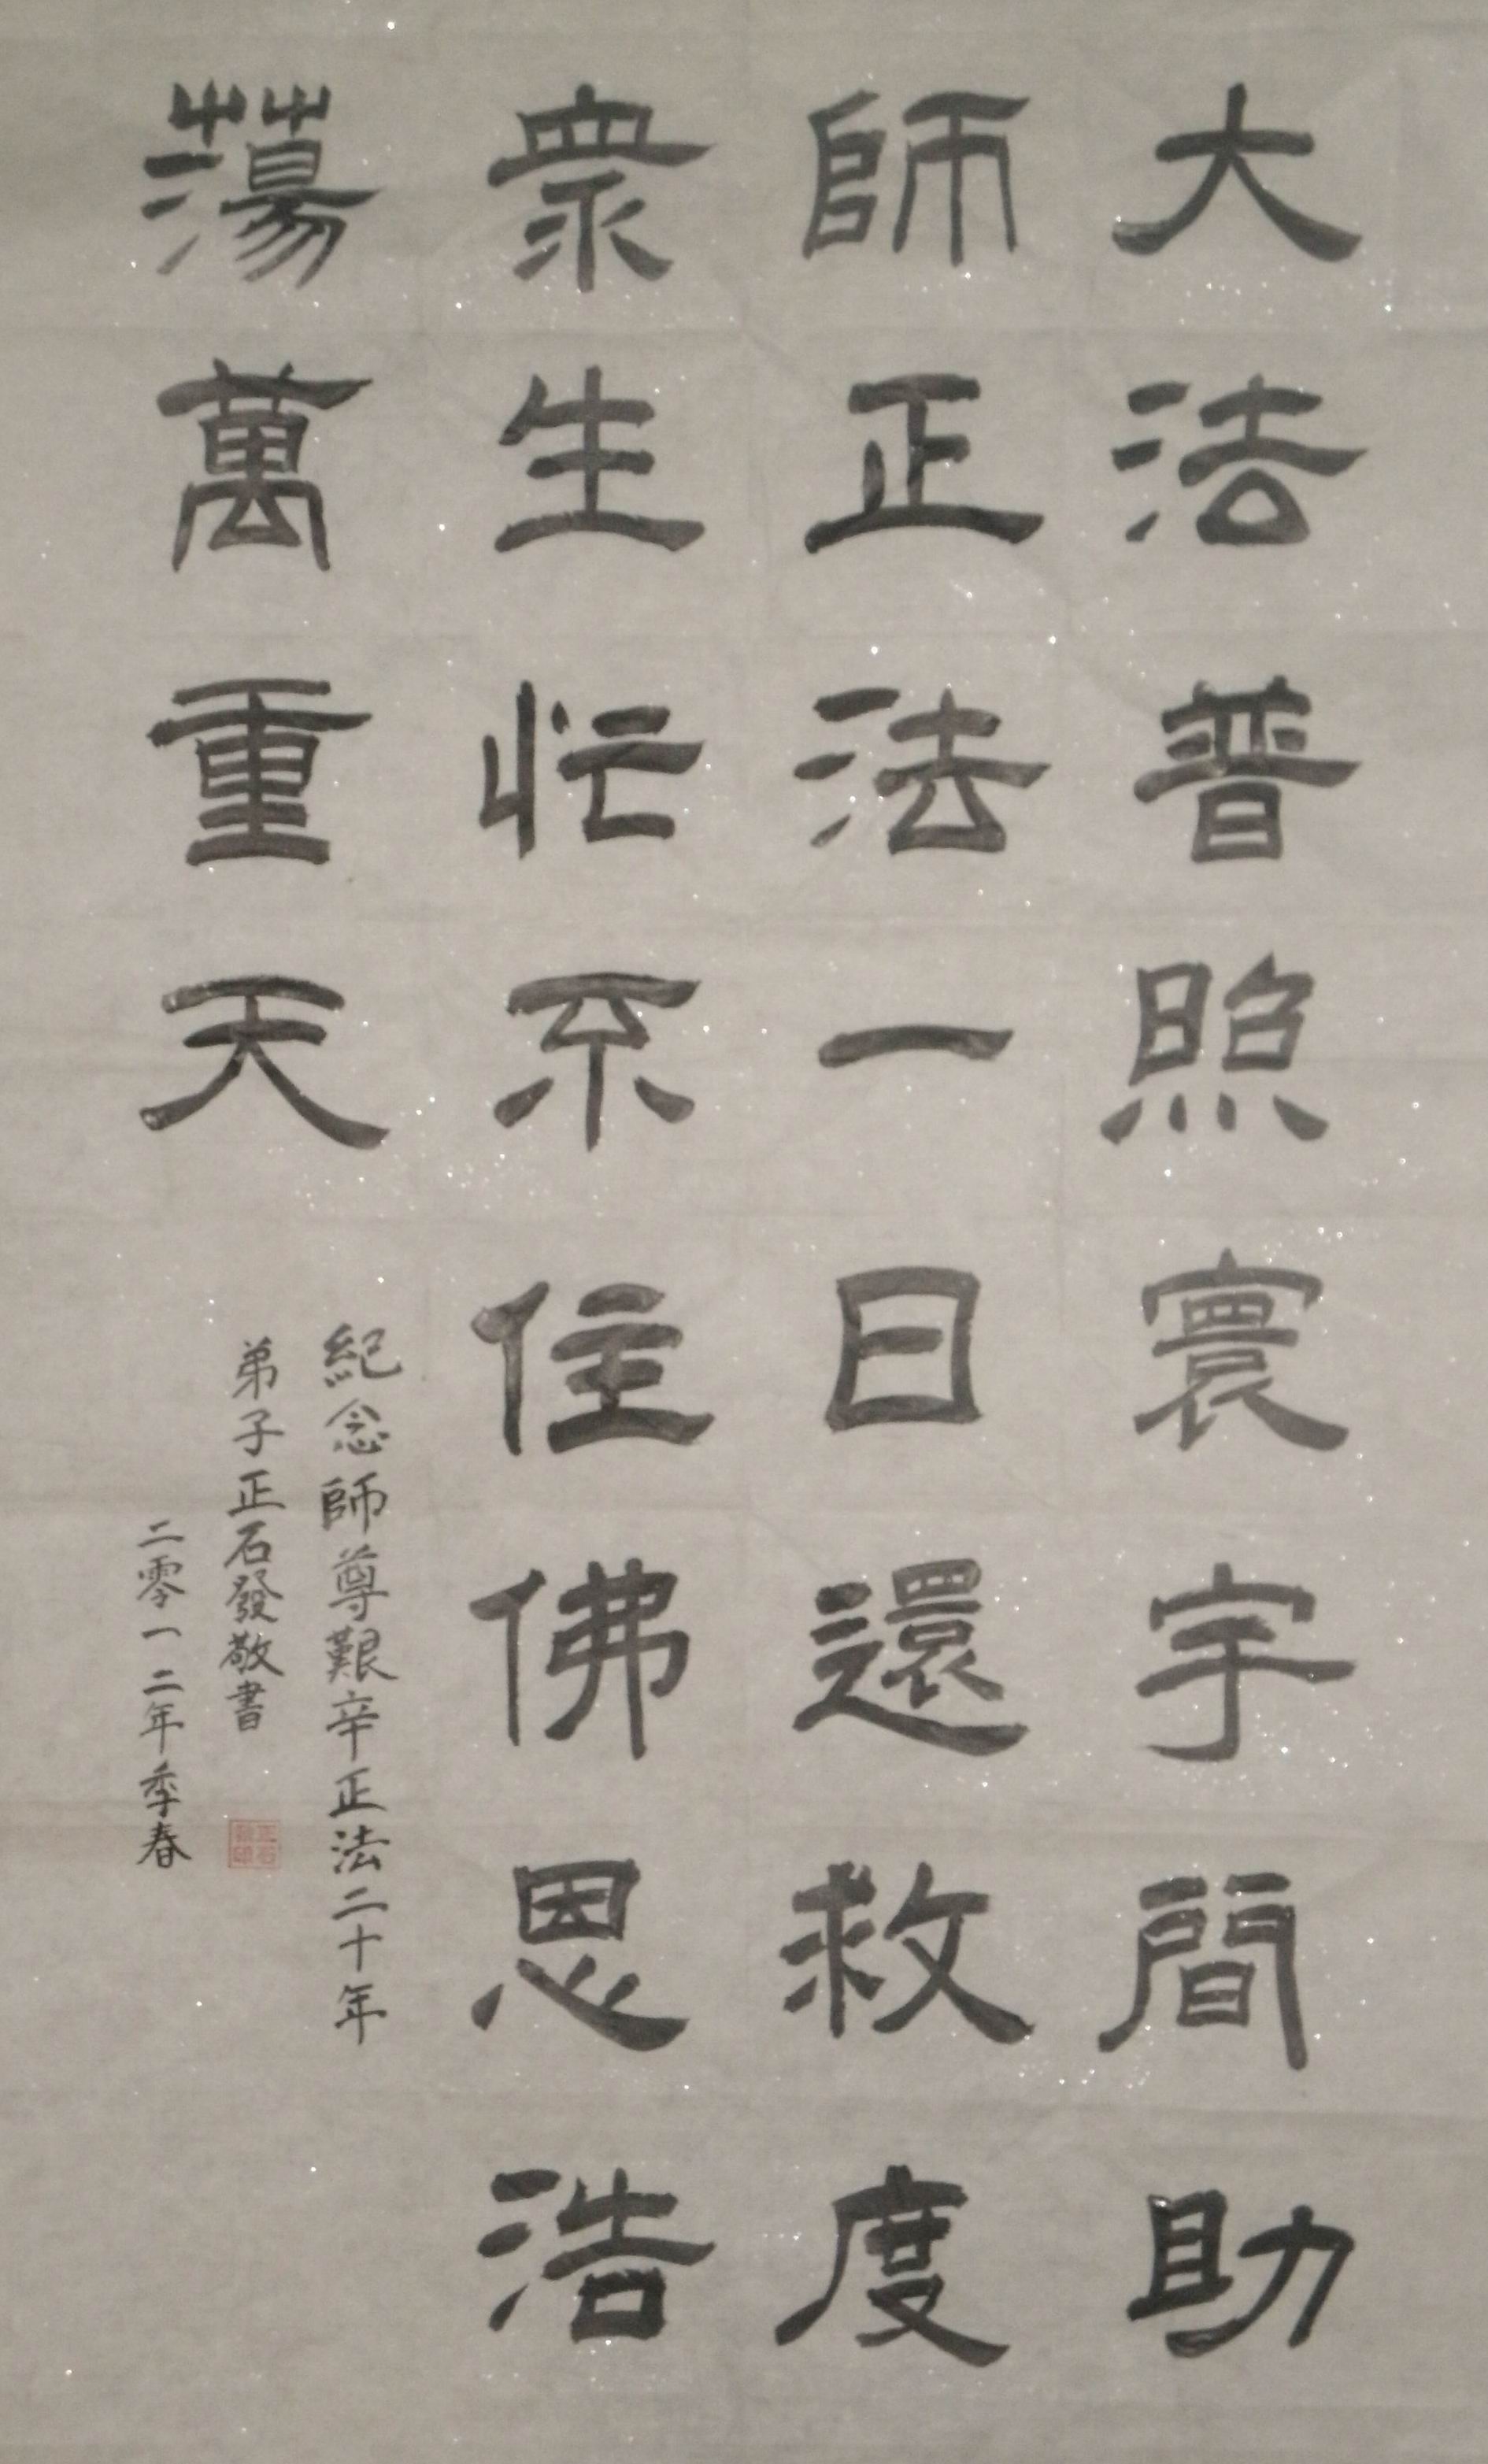 大法普照寰宇間助
師正法一日還救度
衆生忙不住佛恩浩
蕩萬重天
紀念師尊艱辛正法二十年
弟子正石發敬書
二零一二年季春
正石發印